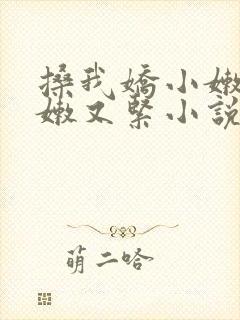 搡我嬌小嫩
嫩又緊小說
萌二哈